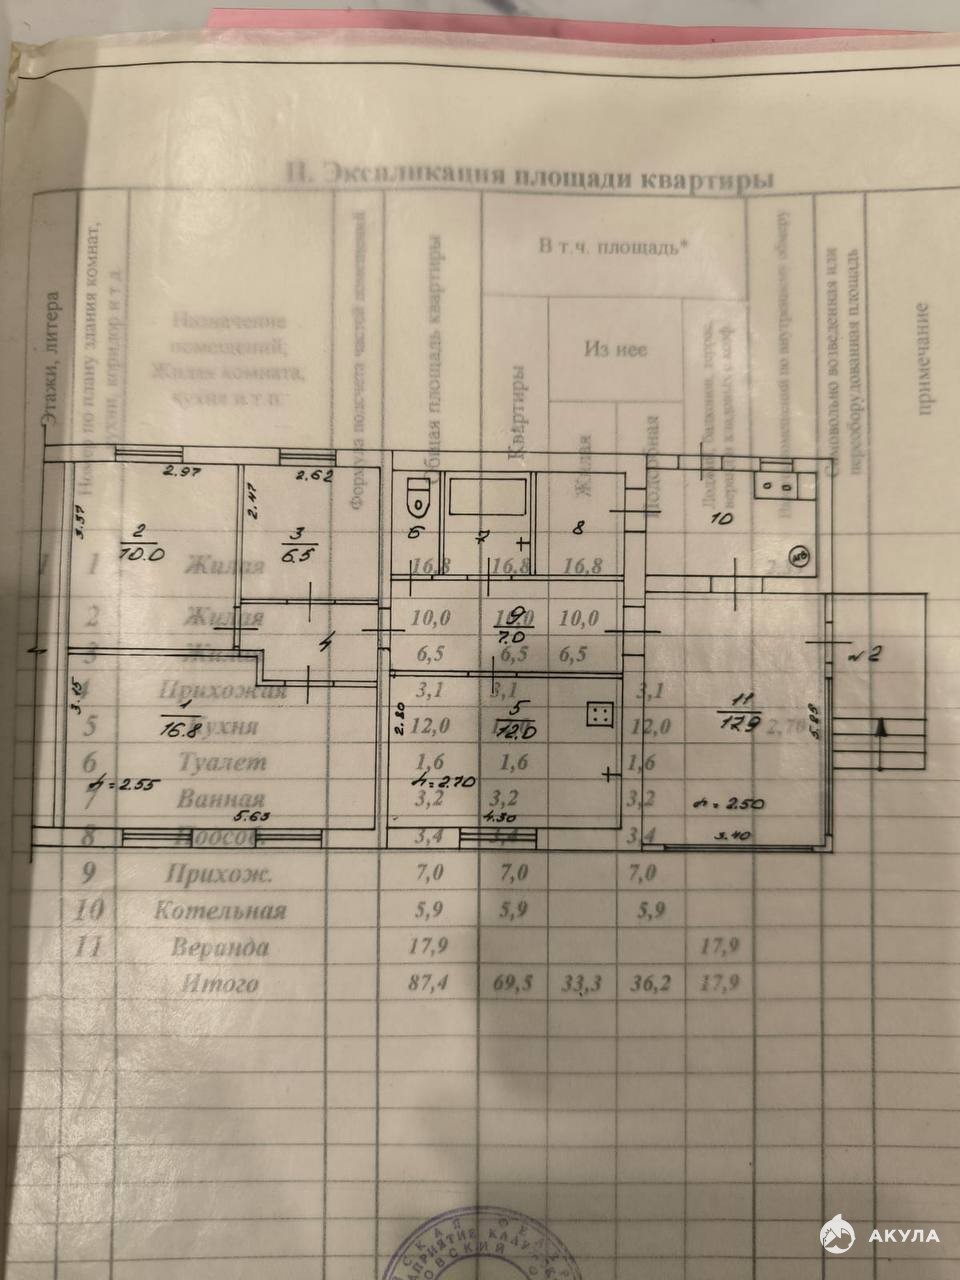 II. Экспликация площади квартиры
Этажи, литера
Номер по плану здания комнат, кухни, коридор и т.д.
Назначение
помещений,
Жилая комната,
кухня и т.п.
Формула подсчета частей помещений
Общая площадь квартиры
В т.ч. площадь*
Квартиры
Из нее
Жилая
Подсобная
Самовольно возведенная или
переоборудованная площадь
примечание
1 1 Жилая 16,8 16,8 16,8
2 Жилая 10,0 10,0 10,0
3 Жилая 6,5 6,5 6,5
4 Прихожая 3,1 3,1 3,1
5 Кухня 12,0 12,0 2,70
6 Туалет 1,6 1,6 1,6
7 Ванная 3,2 3,2 3,2
8 Подсоб. 3,4 3,4 3,4
9 Прихож. 7,0 7,0 7,0
10 Котельная 5,9 5,9 5,9
11 Веранда 17,9 17,9
Итого 87,4 69,5 33,3 36,2 17,9
2.97
2.62
3.37
2.47
2
10.0
3
6.5
6
7
8
10
4
9
7.0
№2
3.15
1
16.8
2.80
5
12.0
11
17.9
5.25
h=2.55
h=2.70
h=2.50
5.63
4.30
3.40
АКУЛА